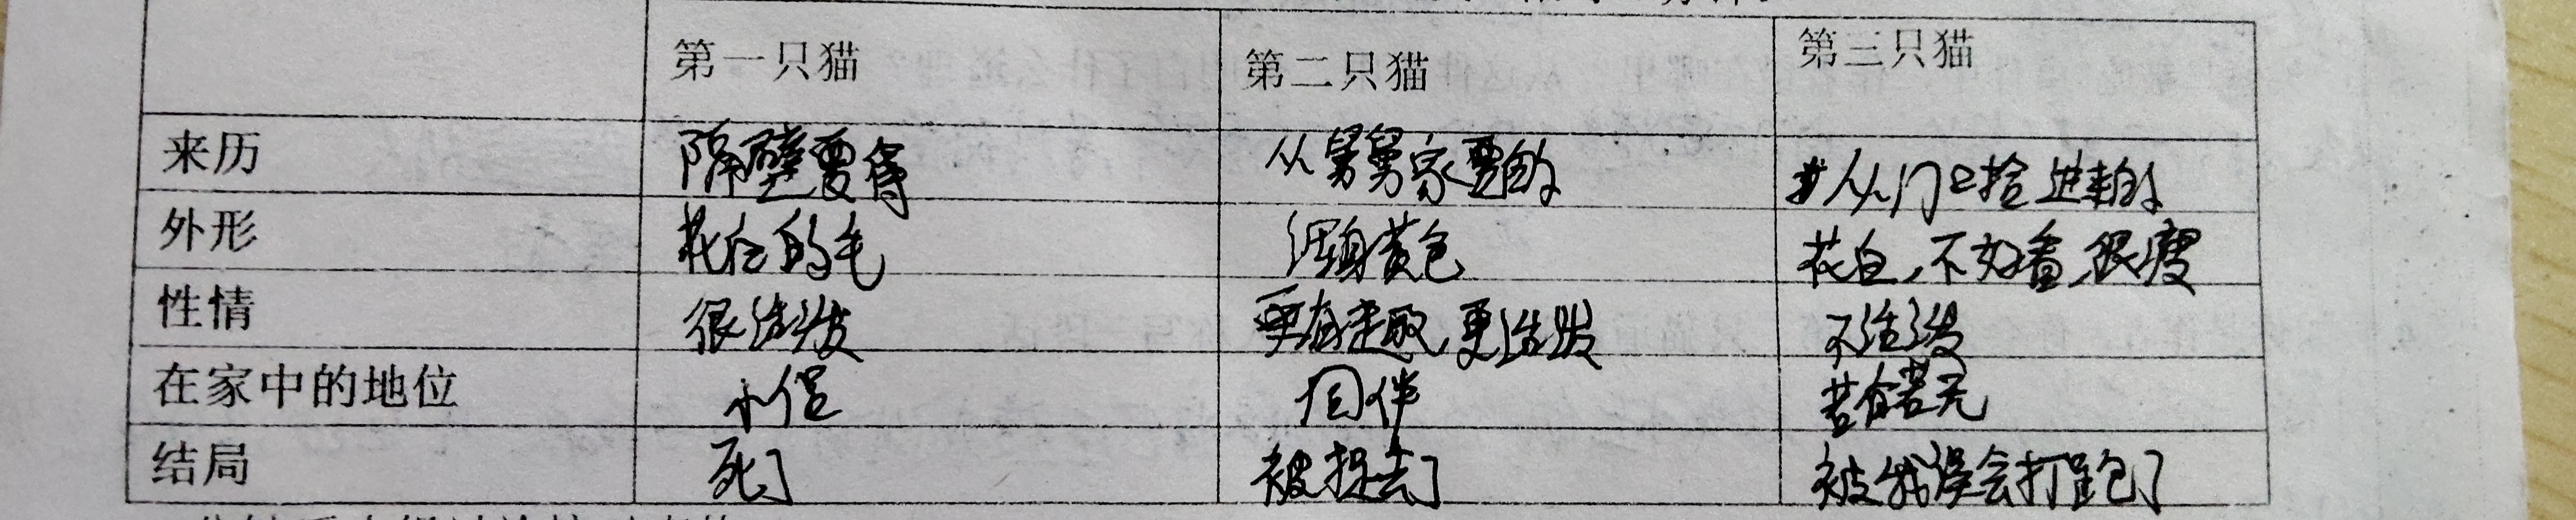 第一只猫 第二只猫 第三只猫
来历 隔壁要得 从舅舅家要的 从门口捡进来的
外形 花白的毛 浑身黄色 花白,不好看,很瘦
性情 很活泼 更有趣,更活泼 不活泼
在家中的地位 小侣 同伴 若有若无
结局 死了 被捉去了 被我误会打跑了